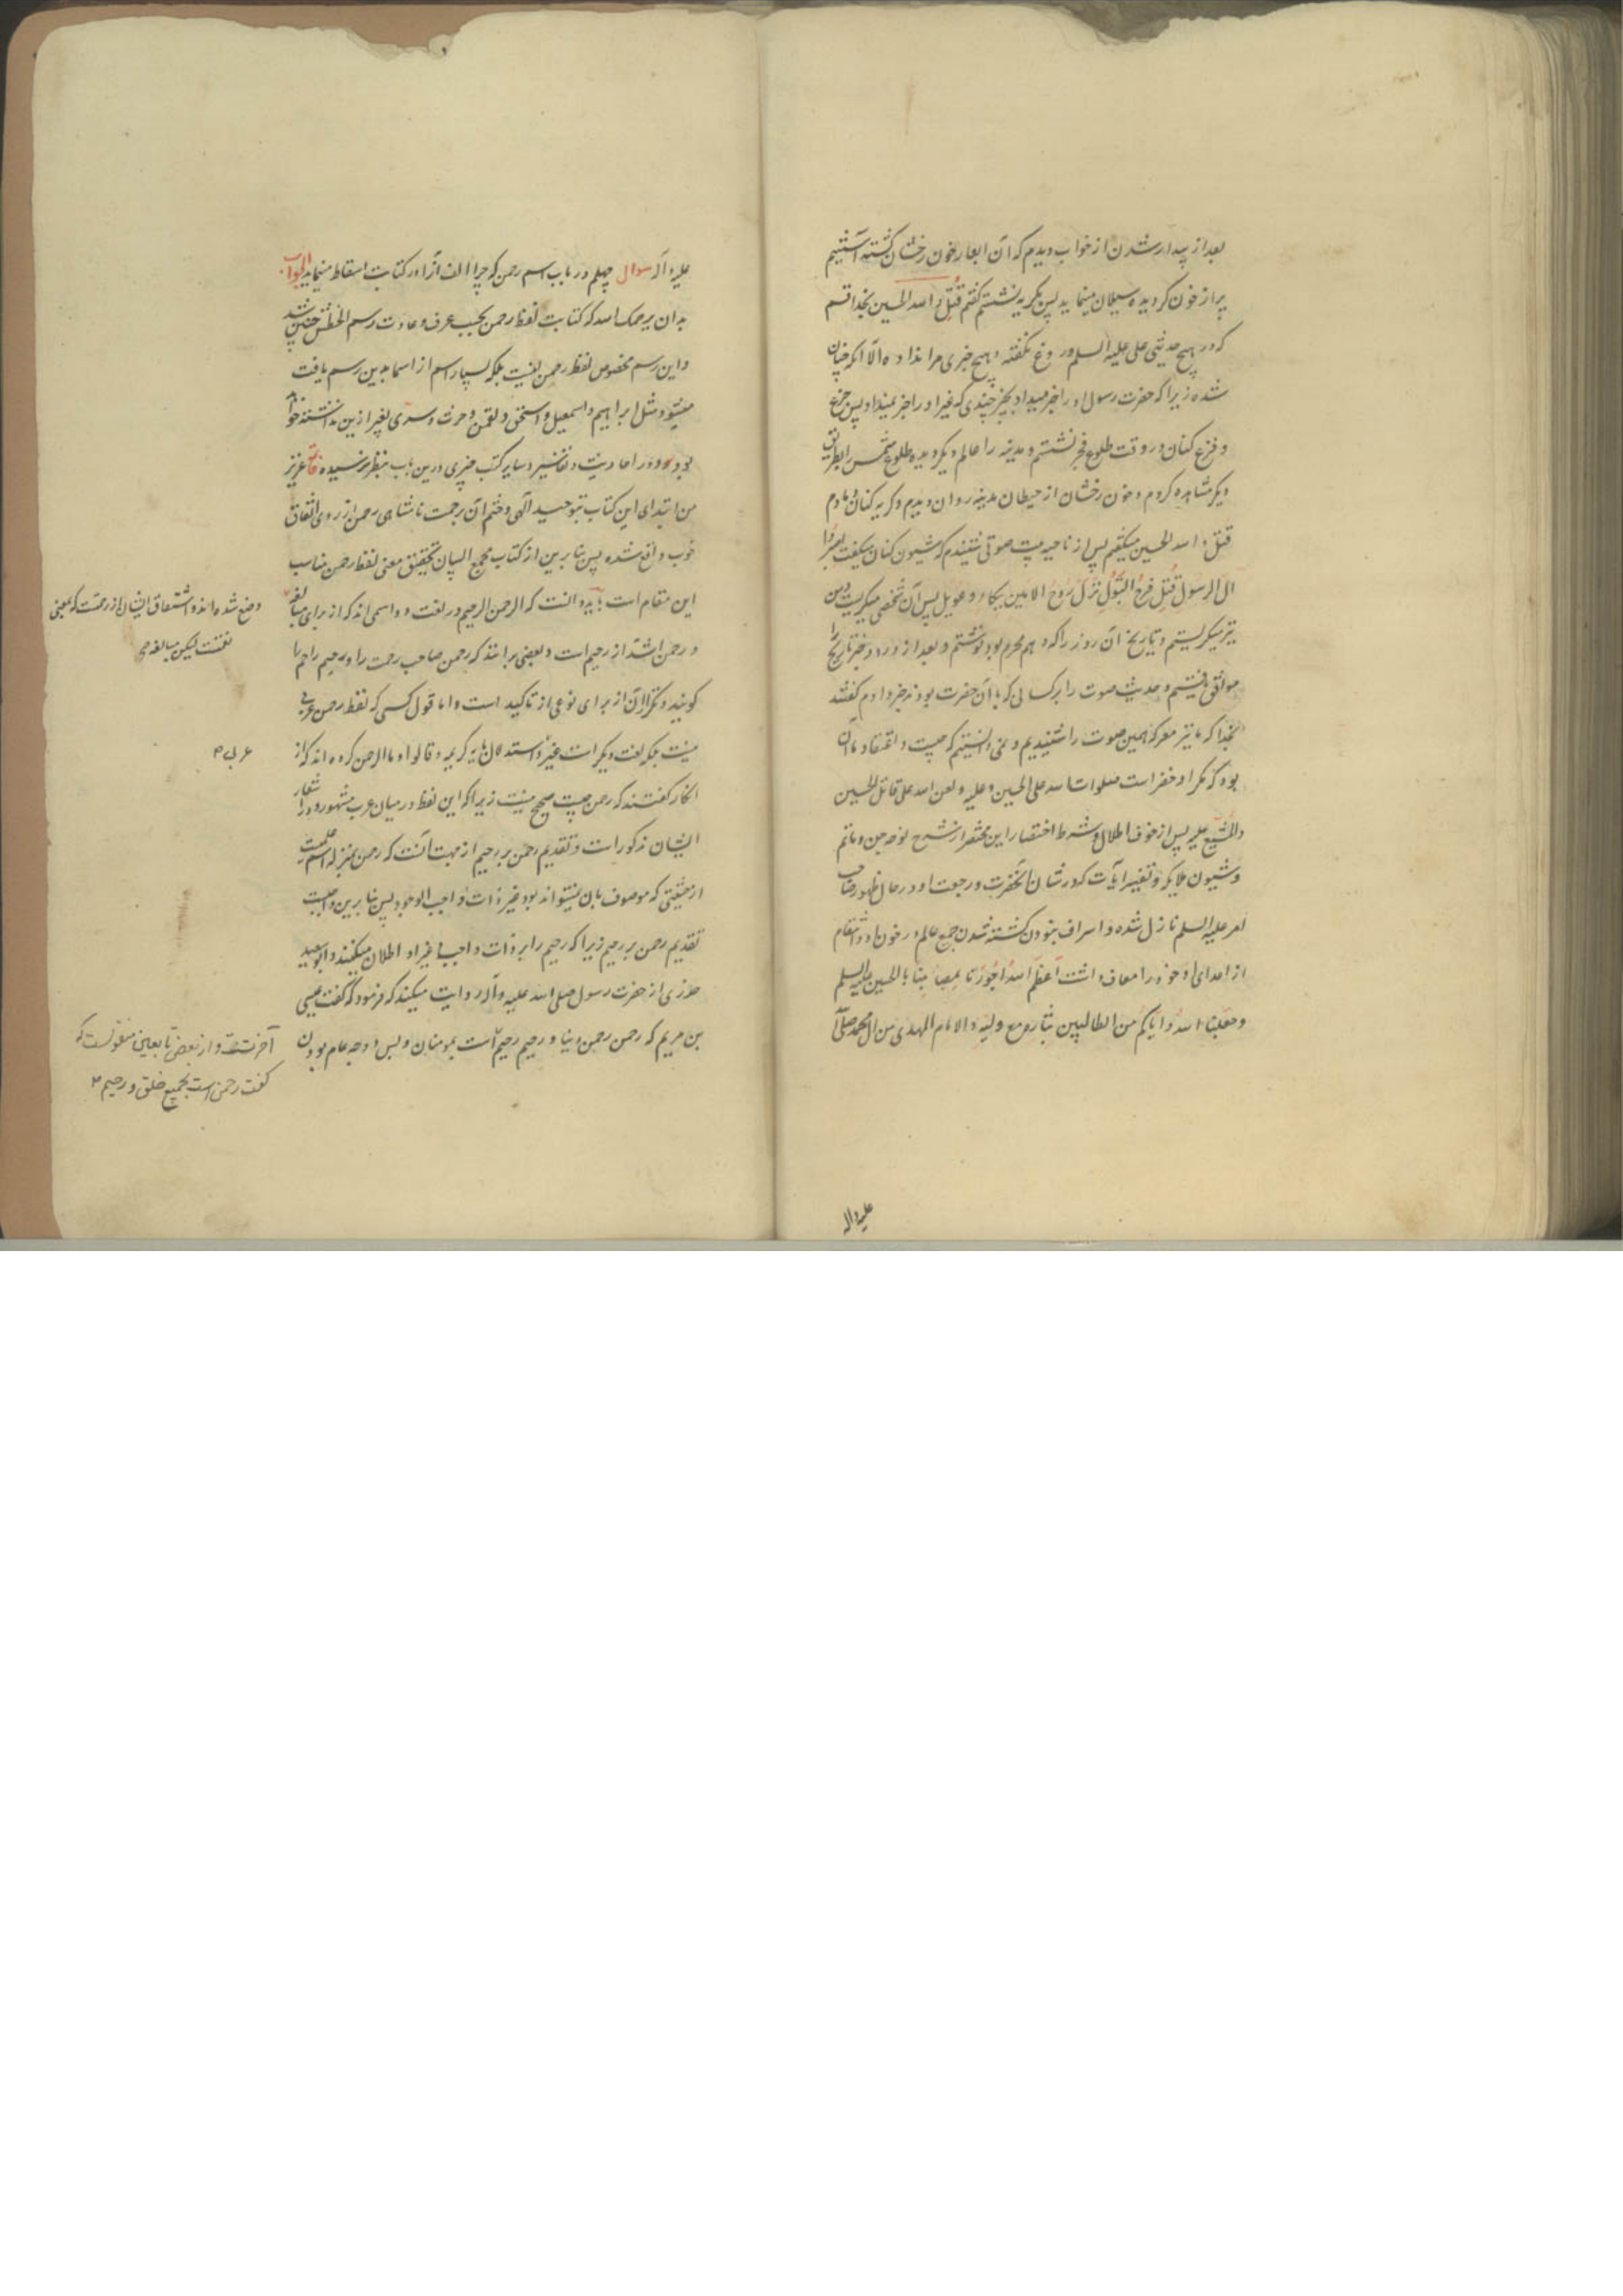 بعد از بیدار شدن از خواب دیدم که آن ابعار خون رخشان کشته آستینم
پر از خون کردیده سیلان مینماید پس بکریه نشستم کفتم قتل و الله الحسین بخدا قسم
که در هیچ حدیثی علی علیه السلم دروغ نکفته و هیچ خبری مرا نداده الا آنکه چنان
شده زیرا که حضرت رسول او را خبر میداد بچیز چندی که غیر او را خبر نمیداد پس جزع
و فزع کنان در وقت طلوع فجر نشستم و مدینه را عالم دیکر دیده طلوع شمس را بطریق
دیکر مشاهده کردم و خون رخشان از حیطان مدینه روان دیدم و کریه کنان مادم
قتل و الله الحسین میکفتم پس از ناحیه بیت صوتی شنیدم که شیون کنان میکفت اصبروا
ال الرسول قتل فرخ البتول نزل روح الامین ببکاء و عویل پس آن شخص میکریست و من
نیز میکریستم و تاریخ آن روز را که دهم محرم بود نوشتم و بعد از ورود خبر تاریخ را
موافق یافتیم و حدیث صوت را بر کسانی که با آن حضرت بودند خبر دادم کفتند
بخدا که ما نیز در معرکه همین صوت را شنیدیم و نمی دانستیم که چیست و اعتقاد ما آن
بود که مکر او خضر است صلوات الله علی الحسین و علیه و لعن الله علی قاتل الحسین
و المشیع علیه پس از خوف اطلال و شرط اختصار این مختصر از شرح نوحه جن و ماتم
و شیون ملایکه و تفسیر ایات که در شان آنحضرت و رجعت او در حال ظهور صاحب
امر علیه السلم نازل شده و اسراف نبودن کشته شدن جمیع عالم در خون او و انتقام
از اعدای او خود را معاف داشت اعظم الله اجورنا بمصابنا بالحسین علیه السلم
و جعلنا الله و ایاکم من الطالبین بثاره مع ولیه و الامام المهدی من ال محمد صلی
علیه و اله
علیه و آله سوال چهلم در باب اسم رحمن که چرا الف آنرا در کتابت اسقاط مینمایند الجواب
بدان یرحمک الله که کتابت لفظ رحمن بحسب عرف و عادت رسم الخطش چنین شد
و این رسم مخصوص لفظ رحمن نیست بلکه بسیار اسم از اسما بدین رسم یافت
میشود مثل ابراهیم و اسمعیل و اسحق و لقمن و حرث و سری بغیر ازین نداشته خواهد
بود و در احادیث و تفاسیر و سایر کتب چیزی درین باب بنظر نرسیده عزیز
من ابتدای این کتاب بتوحید آلهی و ختم آن برحمت نامتناهی رحمن از روی اتفاق
خوب واقع شده پس بنا برین از کتاب مجمع البیان تحقیق معنی لفظ رحمن مناسب
این مقام است بباید دانست که الرحمن الرحیم در لغت دو اسمی اند که از برای مبالغه
وضع شده اند و اشتقاق ایشان از رحمت که بمعنی
نعمتست لیکن مبالغه
در رحمن اشد از رحیم است و بعضی برانند که رحمن صاحب رحمت را و رحیم راحم را
کویند و تکرار آن از برای نوعی از تاکید است و اما قول کسی که لفظ رحمن عربی
نیست بلکه لغت دیکر است غیر عربی و استدلال بایه کریمه و قالوا و ما الرحمن کرده اند که از
انکار کفتند که رحمن چیست صحیح نیست زیرا که این لفظ در میان عرب مشهور و در اشعار
ایشان مذکور است و تقدیم رحمن بر رحیم از جهت آنست که رحمن بمنزله اسم علمست
از حیثیتی که موصوف بان نمیتواند بود غیر ذات واجب الوجود پس بنا برین واجبست
تقدیم رحمن بر رحیم زیرا که رحیم را بر ذات واجب و غیر او اطلاق میکنند و ابو سعید
خدری از حضرت رسول صلی الله علیه و آله روایت میکند که فرمود که کفت عیسی
بن مریم که رحمن رحمن دنیا و رحیم رحیم آخرتست و از بعضی تابعین منقولست که
کفت رحمن است بجمیع خلق و رحیم است بمومنان و بس و وجه عام بودن